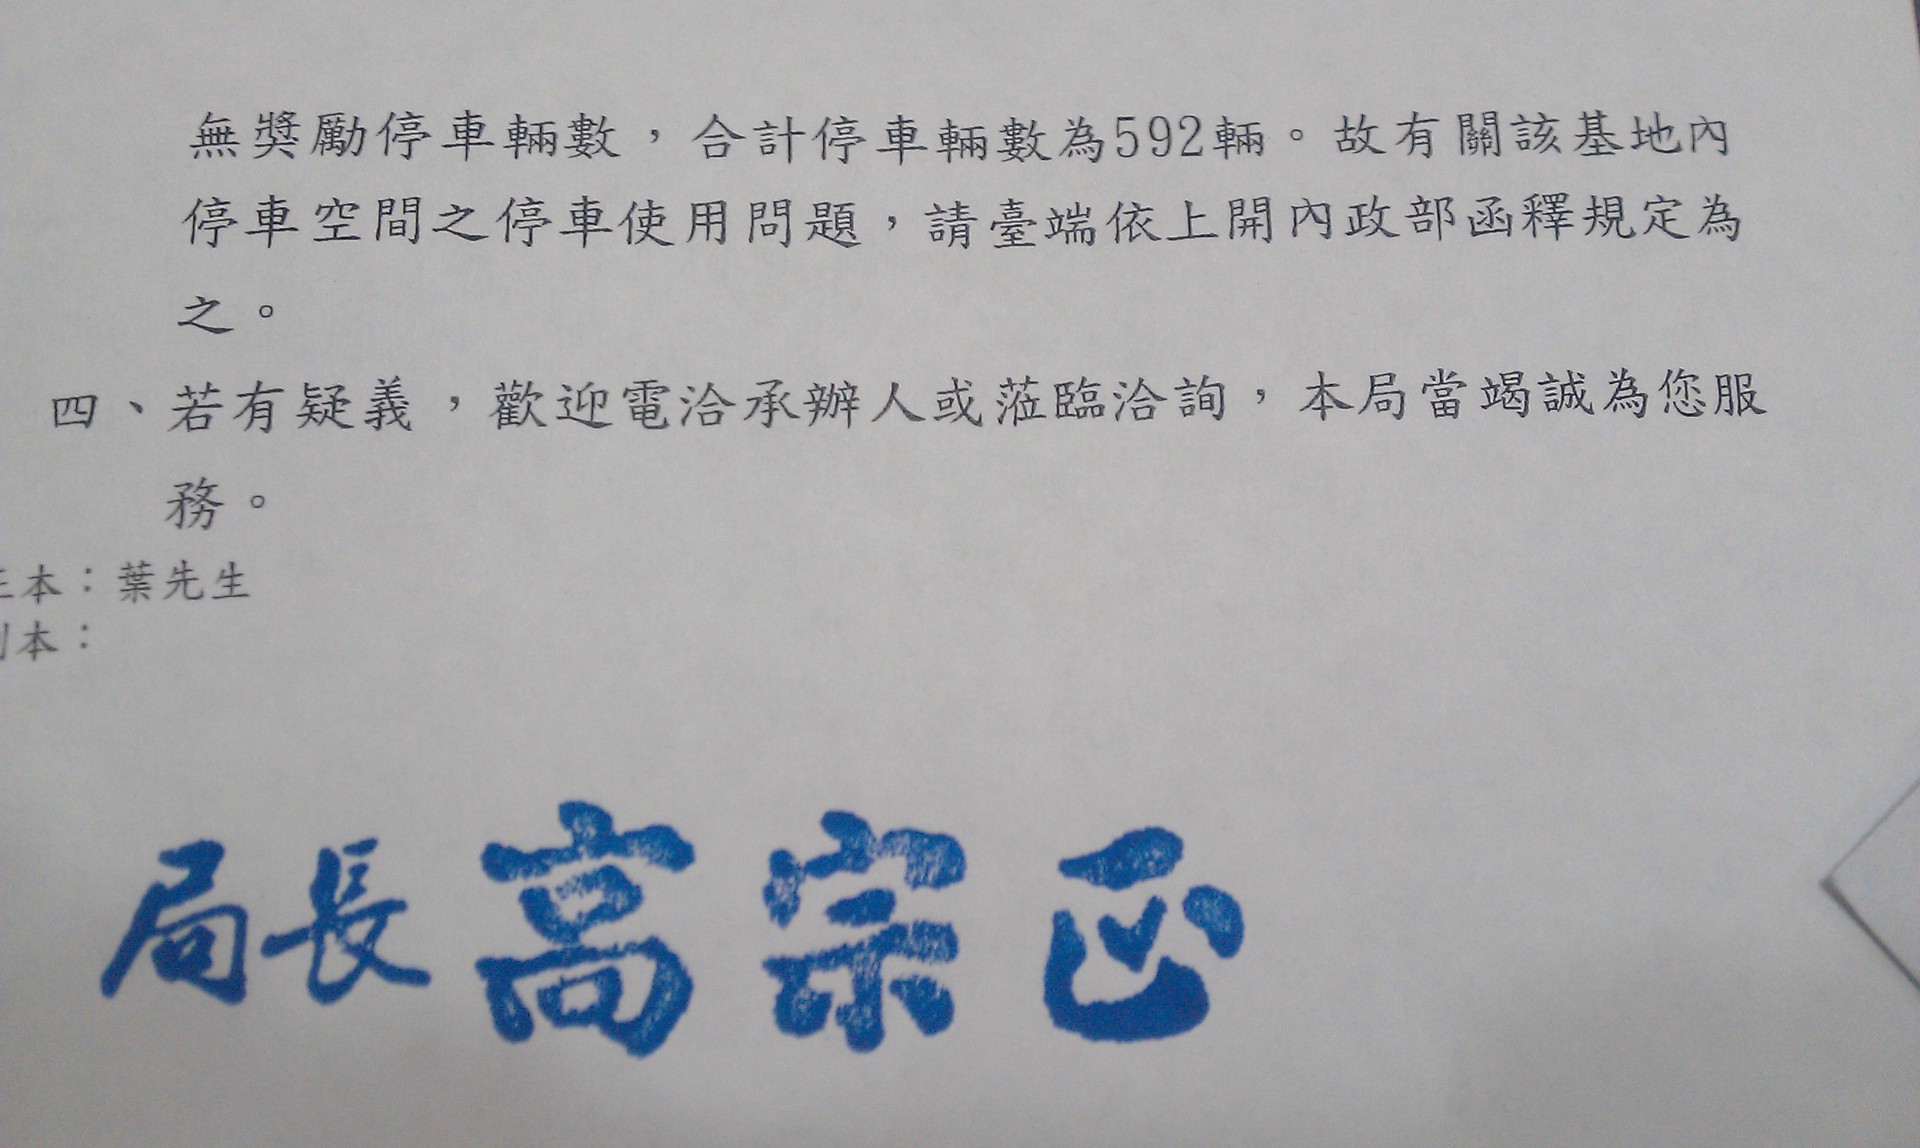 無獎勵停車輛數，合計停車輛數為592輛。故有關該基地內
停車空間之停車使用問題，請臺端依上開內政部函釋規定為
之。
四、若有疑義，歡迎電洽承辦人或蒞臨洽詢，本局當竭誠為您服
務。
正本：葉先生
副本：
局長高宗正